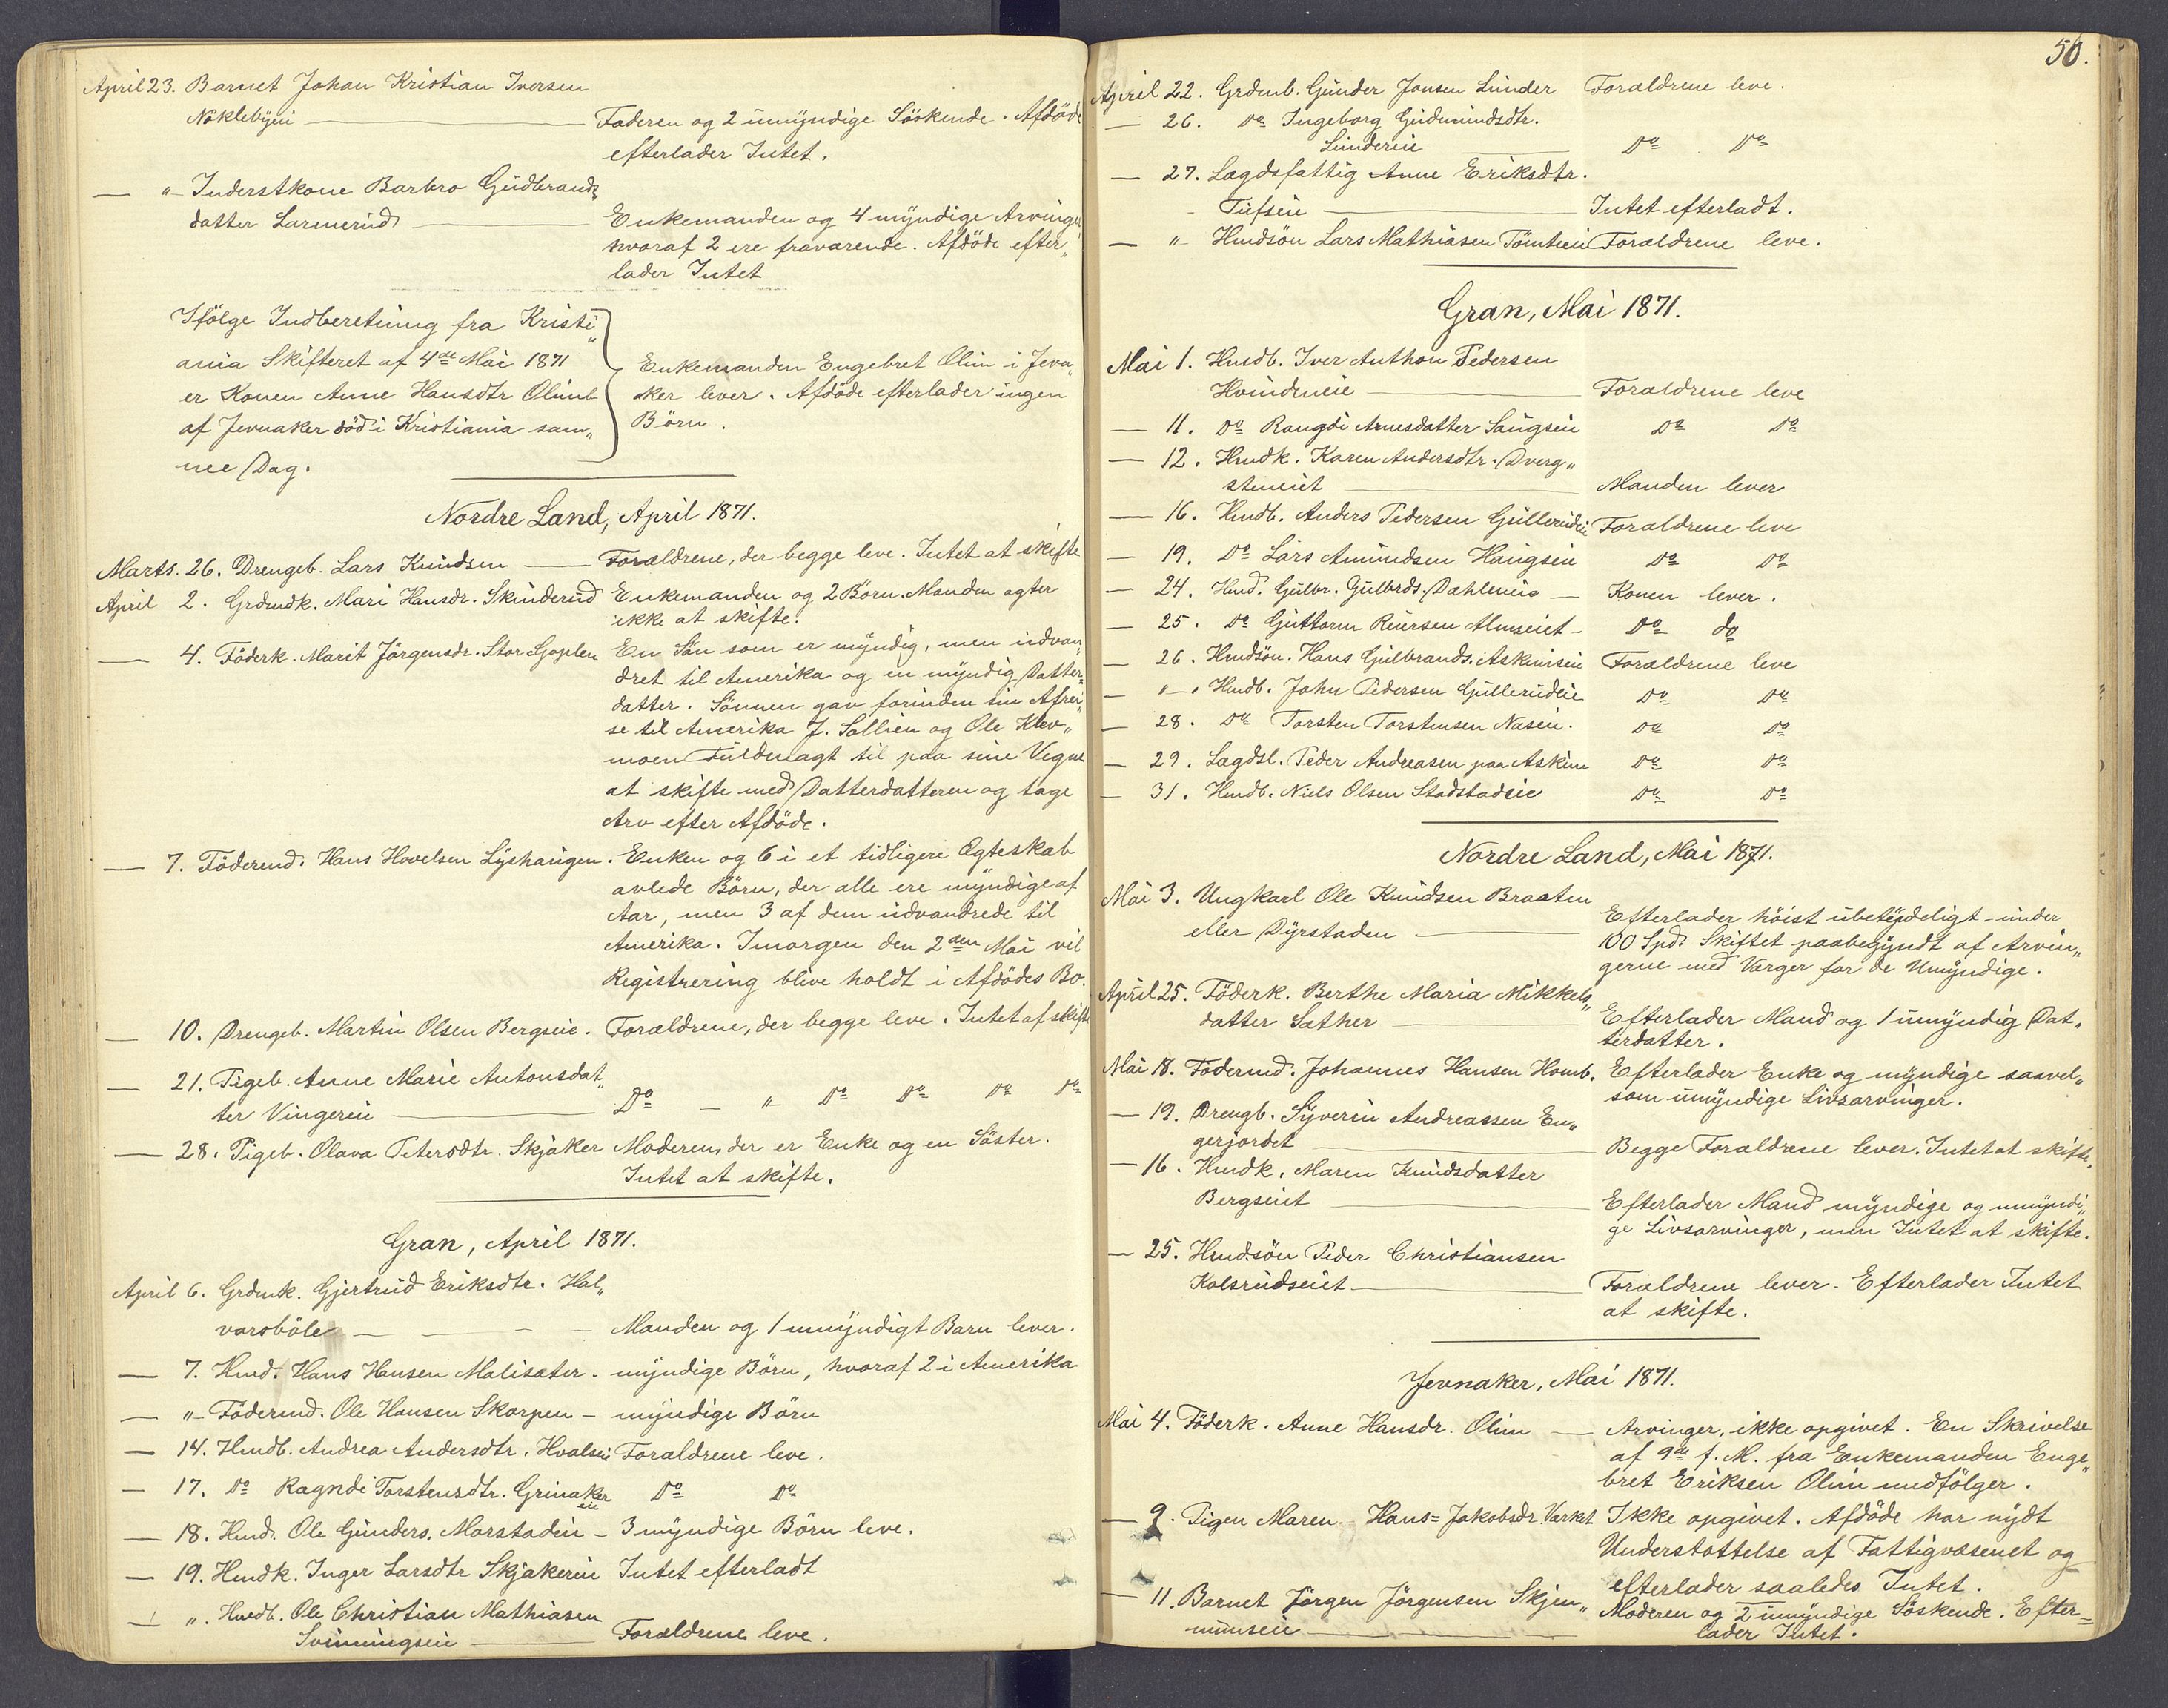 April 23. Barnet Johan Kristian Iversen
Nøklebyeie — Faderen og 2 umyndige Söskende. Afdöde
efterlader Intet.
— " Inderstkone Barbro Gudbrands„
datter Larmerud — Enkemanden og 4 myndige Arvinger
hvoraf 2 ere fraværende. Afdöde efter„
lader Intet
Ifölge Indberetning fra Kristi„
ania Skifteret af 4de Mai 1871
er Konen Anne Hansdtr Olimb
af Jevnaker död i Kristiania sam„
me Dag.
Enkemanden Engebret Olim i Jevn„
aker lever. Afdöde efterlader ingen
Börn.
Nordre Land, April 1871.
Marts. 26. Drengeb. Lars Knudsen — Forældrene, der begge leve. Intet at skifte
April 2. Grdmdk. Mari Hansdr. Skinderud Enkemanden og 2 Börn. Manden agter
ikke at skifte.
— 4. Föderk. Marit Jörgensdr. Stor Gjoplen En Sön som er myndig, men udvan„
dret til Amerika og en myndig Datter„
datter. Sönnen gav forinden sin Afrei„
se til Amerika J. Sollien og Ole Klev„
moen Fuldmagt til paa sine Vegne
at skifte med Datterdatteren og tage
Arv efter Afdöde.
— 7. Födermd. Hans Hovelsen Lyshaugen. Enken og 6 i et tidligere Ægteskab
avlede Börn, der alle ere myndige af
Aar, men 3 af dem udvandrede til
Amerika. Imorgen den 2den Mai vil
Registrering blive holdt i Afdödes Bo.
— 10. Drengeb. Martin Olsen Bergseie. Forældrene, der begge leve. Intet at skifte
— 21. Pigeb. Anne Marie Antonsdat„
ter Vingereie — Do — " Do Do Do Do
— 28. Pigeb. Olava Petersdtr. Skjåker Moderen, der er Enke og en Söster.
Intet at skifte.
Gran, April 1871.
April 6. Grdmk. Gjertrud Eriksdtr. Hal„
varsböle — Manden og 1 umyndigt Barn lever.
— 7. Hmd. Hans Hansen Malisæter. — myndige Börn, hvoraf 2 i Amerika
— " Födermd. Ole Hansen Skorpen — myndige Börn
— 14. Hmdb. Andrea Andersdtr. Hvalseie Forældrene leve.
— 17. Do Ragndi Torstensdtr. Grinakereie Do Do
— 18. Hmd. Ole Gunders. Morstadeie — 3 myndige Börn leve.
— 19. Hmdk. Inger Larsdtr Skjakereie Intet efterladt
— ". Hmdb. Ole Christian Mathiasen
Svinningseie — Forældrene leve.
50.
April 22. Grdmb. Gunder Jonsen Lunder Forældrene leve.
— 26. Do Ingeborg Gudmundsdtr.
Lundereie — Do Do
— 27. Lægdsfattig Anne Eriksdtr.
Tufseie — Intet efterladt.
— " Hmdsön Lars Mathiasen Tömteeie Forældrene leve.
Gran, Mai 1871.
Mai 1. Hmdb. Iver Anthon Pedersen
Hvindeneie — Forældrene leve
— 11. Do Rangdi Arnesdatter Saugseie Do Do
— 12. Hmdk. Karen Andersdtr. Dverg„
steneiet — Manden lever
— 16. Hmdb. Anders Pedersen Gullerudeie Forældrene leve
— 19. Do Lars Amundsen Haugseie Do Do
— 24. Hmd. Gulbr. Gulbrds. Dahleneie — Konen lever.
— 25. Do Guttorm Reiersen Almseiet — Do do
— 26. Hmdsön. Hans Gulbrands. Askimseie Forældrene leve
— " Hmdb. John Pedersen Gullerudeie Do Do
— 28. Do Torsten Torstensen Næseie. Do Do
— 29. Lægdsl. Peder Andreasen paa Askim Do Do
— 31. Hmdb. Niels Olsen Stadstadeie Do Do
Nordre Land, Mai 1871.
Mai 3. Ungkarl Ole Knudsen Braaten
eller Dyrstaden — Efterlader höist ubetydeligt – under
100 Spd. Skiftet paabegyndt af Arvin„
gerne med Værger for de Umyndige.
April 25. Föderk. Berthe Maria Mikkels„
datter Sæther — Efterlader Mand og 1 umyndig Dat„
terdatter.
Mai 18. Födermd. Johannes Hansen Homb. Efterlader Enke og myndige saavel„
som umyndige Livsarvinger.
— 19. Drengb. Syverin Andreassen En„
gerjordet — Begge Forældrene lever. Intet at skifte.
— 16. Hmdk. Maren Knudsdatter
Bergseiet — Efterlader Mand myndige og umyndi„
ge Livsarvinger, men Intet at skifte.
— 25. Hmdsön Peder Christiansen
Kolsrudseiet — Forældrene lever. Efterlader Intet
at skifte.
Jevnaker, Mai 1871.
Mai 4. Föderk. Anne Hansdr. Olim — Arvinger, ikke opgivet. En Skrivelse
af 9de f. M. fra Enkemanden Enge„
bret Eriksen Olim medfölger.
— 9. Pigen Maren Hans=Jakobsdr. Værket Ikke opgivet. Afdöde har nydt
Understøttelse af Fattigvæsenet og
efterlader saaledes Intet.
— 11. Barnet Jörgen Jörgensen Skjen„
numseie — Moderen og 2 umyndige Söskende. Efter=
lader Intet.